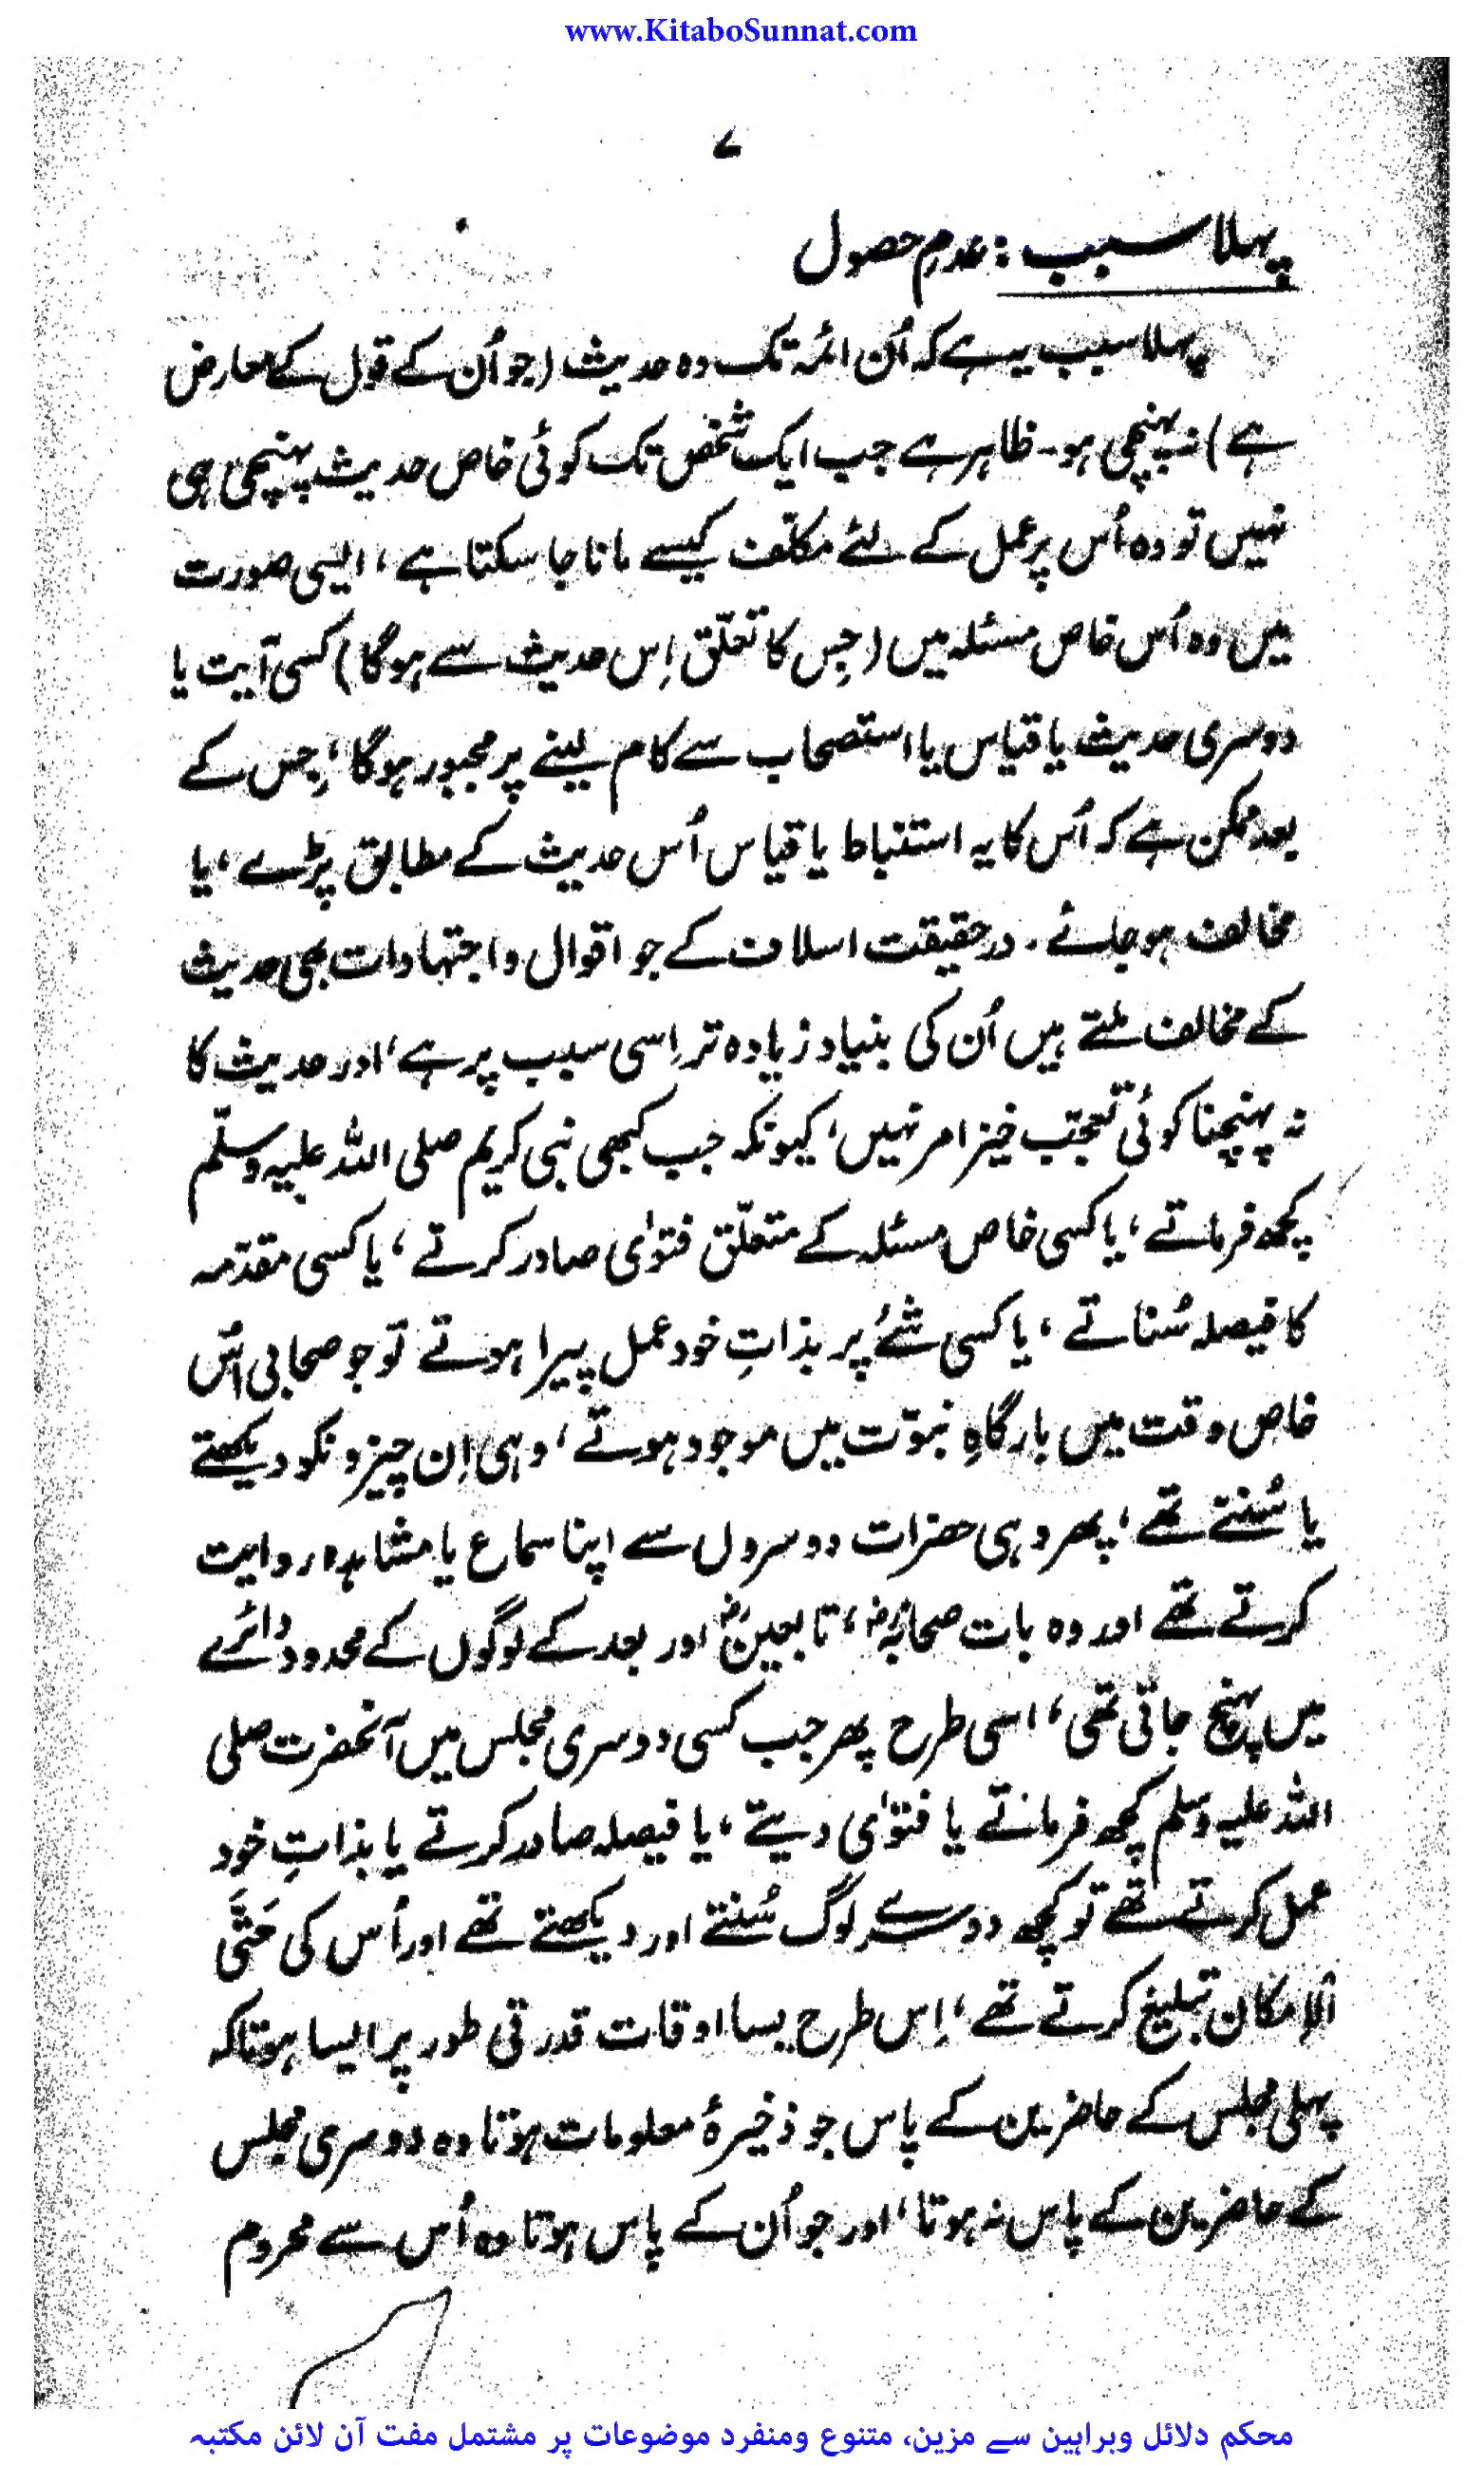 www.KitaboSunnat.com
۷
پہلا سبب : عدمِ حصول
پہلا سبب یہ ہے کہ اُن ائمہ تک وہ حدیث (جو اُن کے قول کے معارض
ہے) نہ پہنچی ہو۔ ظاہر ہے جب ایک شخص تک کوئی خاص حدیث پہنچی ہی
نہیں تو وہ اُس پر عمل کے لئے مکلّف کیسے مانا جا سکتا ہے، ایسی صورت
میں وہ اُس خاص مسئلہ میں (جِس کا تعلّق اِس حدیث سے ہوگا) کسی آیت یا
دوسری حدیث یا قیاس یا استصحاب سے کام لینے پر مجبور ہوگا، جِس کے
بعد ممکن ہے کہ اُس کا یہ استنباط یا قیاس اُس حدیث کے مطابق پڑے، یا
مخالف ہو جائے۔ درحقیقت اسلاف کے جو اقوال و اجتہادات بھی حدیث
کے مخالف ملتے ہیں اُن کی بنیاد زیادہ تر اِسی سبب پر ہے، اور حدیث کا
نہ پہنچنا کوئی تعجّب خیز امر نہیں، کیونکہ جب کبھی نبی کریم صلی اللہ علیہ وسلّم
کچھ فرماتے، یا کسی خاص مسئلہ کے متعلّق فتوٰی صادر کرتے، یا کسی مقدّمہ
کا فیصلہ سُناتے، یا کسی شےُ پر بذاتِ خود عمل پیرا ہوتے تو جو صحابی اُس
خاص وقت میں بارگاہِ نبوّت میں موجود ہوتے، وہی اِن چیزونکو دیکھتے
یا سُنتے تھے، پھر وہی حضرات دوسروں سے اپنا سماع یا مشاہدہ روایت
کرتے تھے اور وہ بات صحابہؓ، تابعینؒ اور بعد کے لوگوں کے محدود دائرے
میں پہنچ جاتی تھی، اسی طرح پھر جب کسی دوسری مجلس میں آنحضرت صلی
اللہ علیہ وسلم کچھ فرماتے یا فتوٰی دیتے، یا فیصلہ صادر کرتے یا بذاتِ خود
عمل کرتے تھے تو کچھ دوسرے لوگ سُنتے اور دیکھتے تھے اور اُس کی حَتَّی
الاِمکان تبلیغ کرتے تھے، اِس طرح بسا اوقات قدرتی طور پر ایسا ہوتا کہ
پہلی مجلس کے حاضرین کے پاس جو ذخیرۂ معلومات ہوتا وہ دوسری مجلس
کے حاضرین کے پاس نہ ہوتا، اور جو اُن کے پاس ہوتا وہ اُس سے محروم
محکم دلائل وبراہین سے مزین، متنوع ومنفرد موضوعات پر مشتمل مفت آن لائن مکتبہ